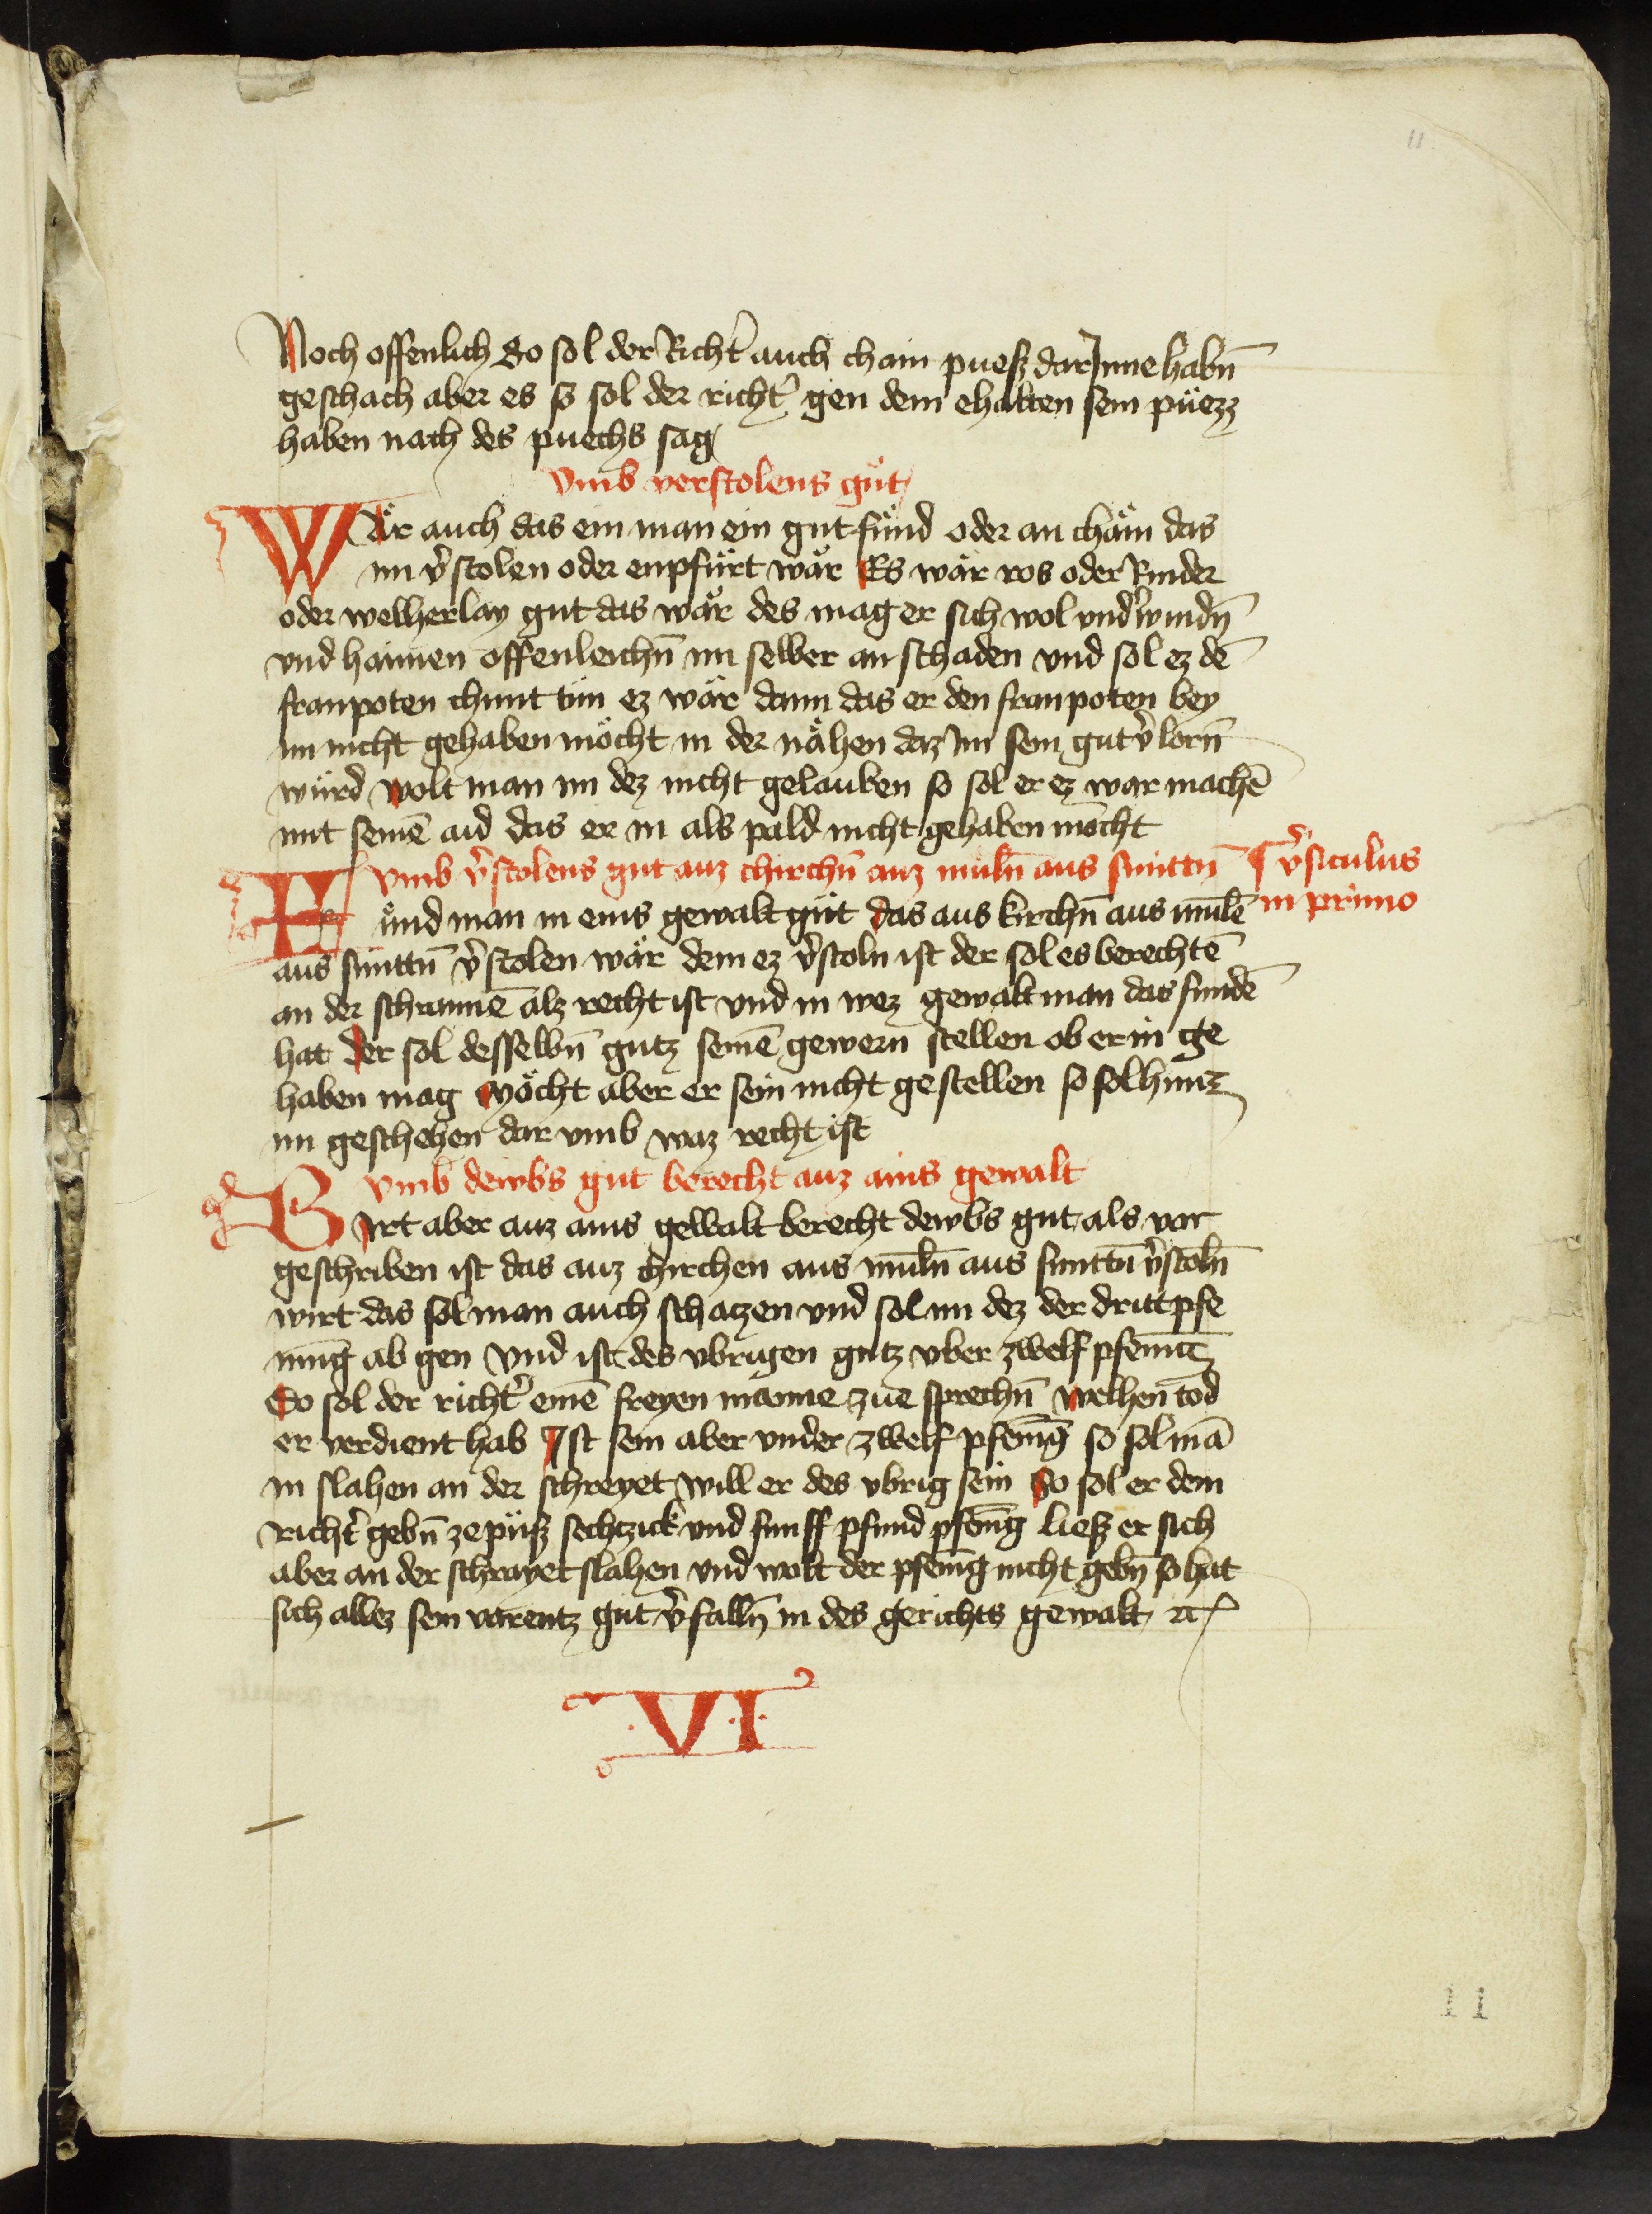 11
Noch offenlich So sol der Richt̓ auch chain puesz dar Inne habn̄
geschach aber es so sol der richt̓ gen dem ehalten sein püezz
haben nach des puechs sag
Vmb verstolens gůt
Wär auch das ein man ein gut fund oder an chäm das
im v̓stolen oder enpfürt wär Es wär ros oder Rinder
oder welherlay gut das wär des mag er sich wol vnd̓windn̄
vnd haimen offenleichn̄ im selber an schaden vnd sol ez dē
fronpoten chunt tün ez wär dann das er den fronpoten bey
im nicht gehaben möcht in der nähen daz Im sein gut v̓lorn̄
würd wolt man im dez nicht gelauben so sol er ez war machē
mit seinē aid das er in als pald nicht gehaben möcht
Vmb v̓stolens gut auz chirchn̄ auz muln̄ aus smittn̄
v̓siculus
in primo
Fund man in eins gewalt güt das aus kirchn̄ aus mulē
aus smittn̄ v̓stolen wär dem ez v̓stoln ist der sol es berechtē
an der schrannē alz recht ist vnd in wez gewalt man das fundē
hat der sol desselbn̄ gutz seinē gewern stellen ob er in ge
haben mag Möcht aber er sein nicht gestellen so sol hintz
im geschehen dar vmb waz recht ist
Vmb dewbs gut berecht auz ains gewalt
Wirt aber auz ains gewalt berecht dewbs gut als vor
geschriben ist das auz chirchen aus muln̄ aus smittn̄ v̓stoln̄
wirt das sol man auch schatzen vnd sol im dez der dritt pfe
ning ab gen Vnd ist des vbrigen gutz vber zwelf pfenn̄
So sol der richt̓ einē freyen manne zue sprechn̄ welhen tod
er verdient hab Ist sein aber vnder zwelf pfenīg so sol mā
in slahen an der schreyet will er des vbrig sein So sol er dem
richt̓ gebn̄ ze püsz sechtzick vnd funff pfund pfenīg liesz er sich
aber an der schrayet slahen vnd wolt der pfenīg nicht gebn̄ so hat
sich allez sein varentz gut v̓falln̄ in des gerichts gewalt ꝛc
·V·I·
11